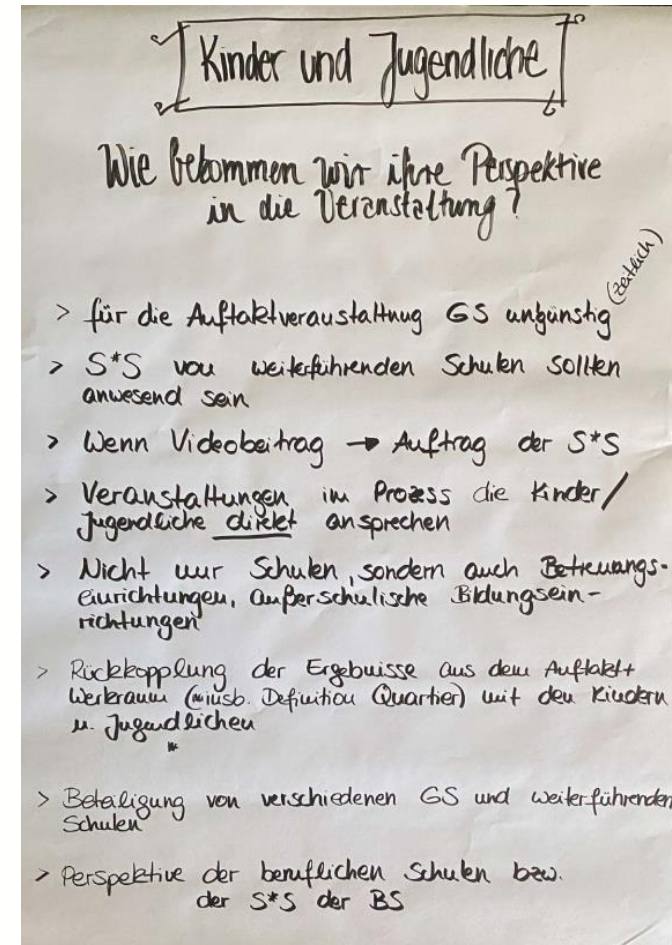 Kinder und Jugendliche
Wie bekommen wir ihre Perspektive
in die Veranstaltung?
(zeitlich)
> für die Auftaktveranstaltung GS ungünstig
> S*S von weiterführenden Schulen sollten
anwesend sein
> Wenn Videobeitrag → Auftrag der S*S
> Veranstaltungen im Prozess die Kinder/
Jugendliche direkt ansprechen
> Nicht nur Schulen, sondern auch Betreuungs-
einrichtungen, außerschulische Bildungsein-
richtungen
> Rückkopplung der Ergebnisse aus dem Auftakt+
Werkraum (insb. Definition Quartier) mit den Kindern
u. Jugendlichen
> Beteiligung von verschiedenen GS und weiterführenden
Schulen
> Perspektive der beruflichen Schulen bzw.
der S*S der BS